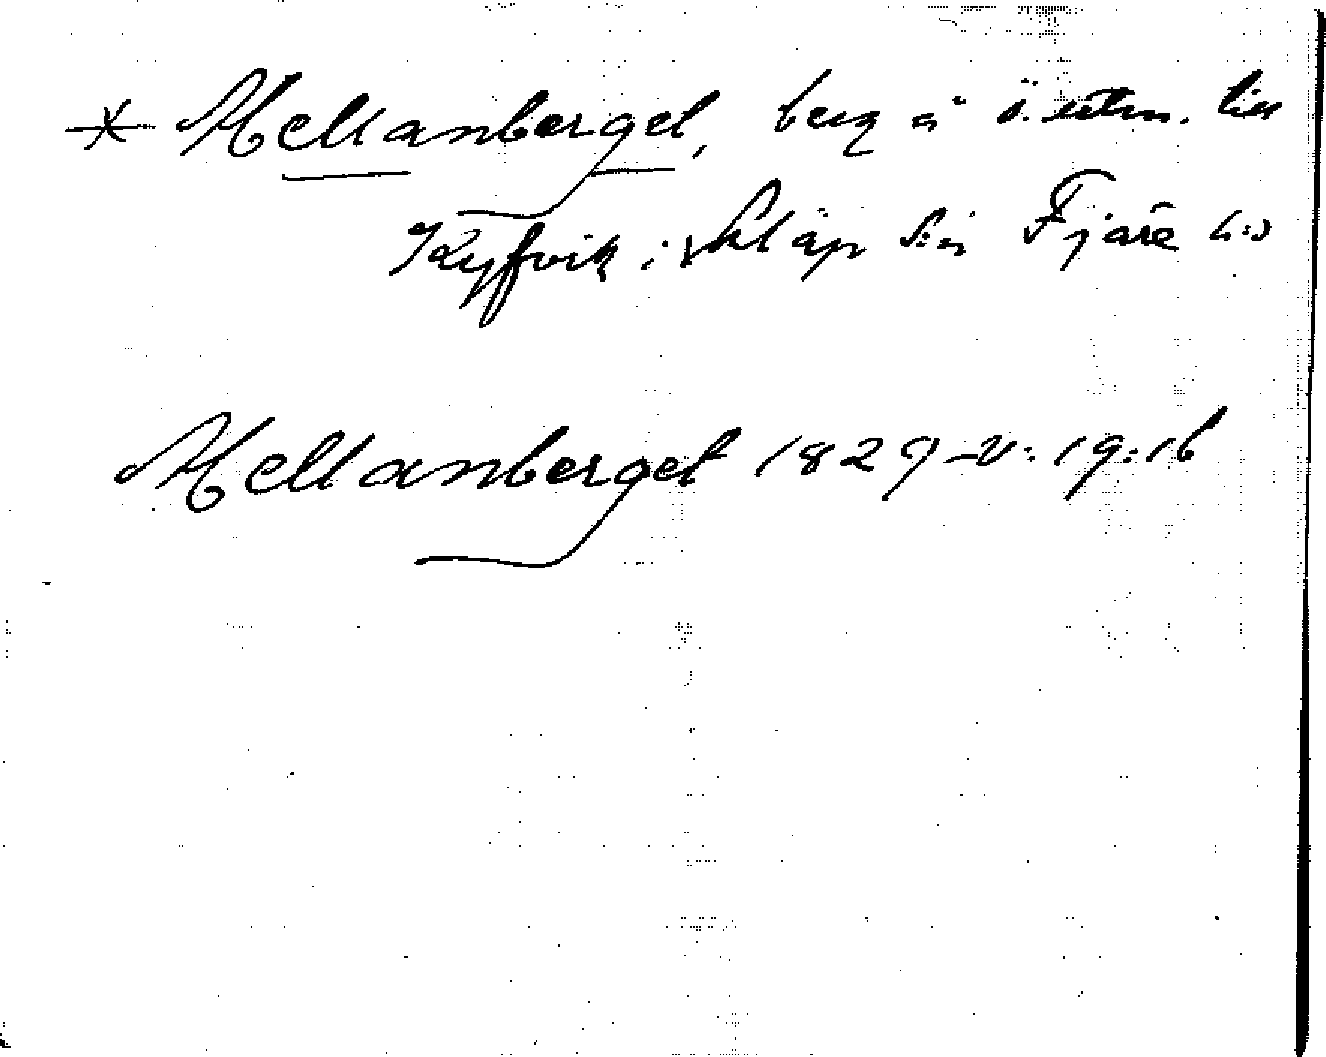 * Mellanberget, berg å ö. utm. till
Kyfvik i Släp sn Fjäre hd
Mellanberget 1829-v: 19:16